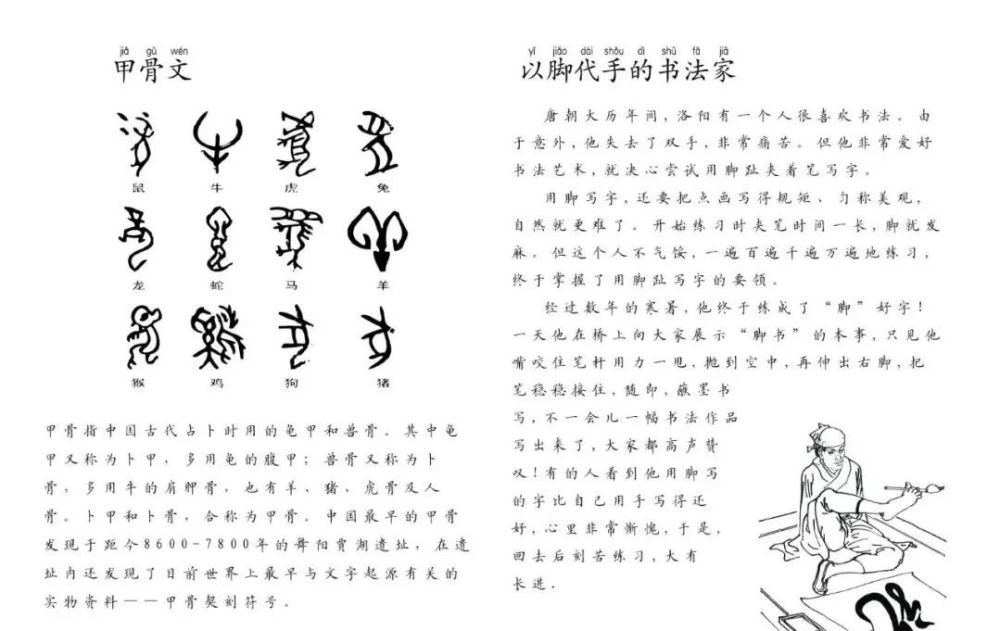 jiǎ gǔ wén
甲骨文
鼠 牛 虎 兔
龙 蛇 马 羊
猴 鸡 狗 猪
甲骨指中国古代占卜时用的龟甲和兽骨。其中龟
甲又称为卜甲，多用龟的腹甲；兽骨又称为卜
骨，多用牛的肩胛骨，也有羊、猪、虎骨及人
骨。卜甲和卜骨，合称为甲骨。中国最早的甲骨
发现于距今8600-7800年的舞阳贾湖遗址，在遗
址内还发现了目前世界上最早与文字起源有关的
实物资料——甲骨契刻符号。
yǐ jiǎo dài shǒu dì shū fǎ jiā
以脚代手的书法家
唐朝大历年间，洛阳有一个人很喜欢书法。由
于意外，他失去了双手，非常痛苦。但他非常爱好
书法艺术，就决心尝试用脚趾夹着笔写字。
用脚写字，还要把点画写得规矩、匀称美观，
自然就更难了。开始练习时夹笔时间一长，脚就发
麻。但这个人不气馁，一遍百遍千遍万遍地练习，
终于掌握了用脚趾写字的要领。
经过数年的寒暑，他终于练成了“脚”好字！
一天他在桥上向大家展示“脚书”的本事，只见他
嘴咬住笔杆用力一甩，抛到空中，再伸出右脚，把
笔稳稳接住，随即，蘸墨书
写，不一会儿一幅书法作品
写出来了，大家都高声赞
叹！有的人看到他用脚写
的字比自己用手写得还
好，心里非常惭愧，于是，
回去后刻苦练习，大有
长进.